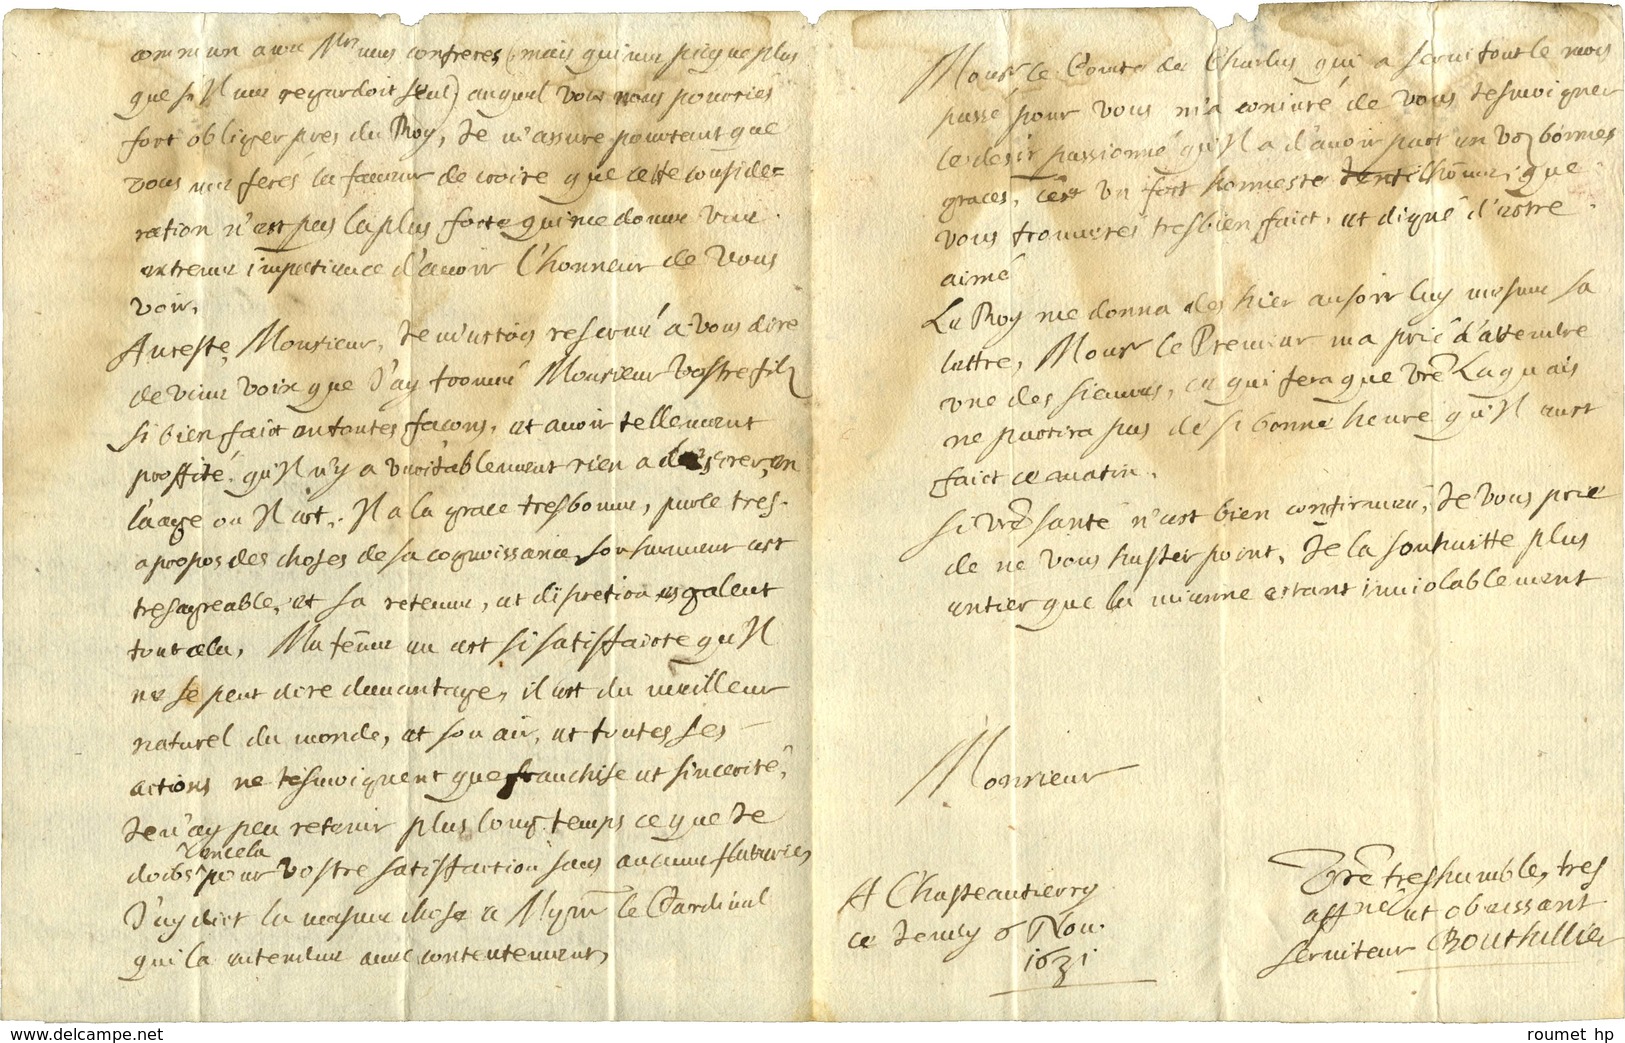 commun avec Mrs mes confreres (mais qui me picque plus
que s'Il me regardoit seul) auquel vous nous pourriés
fort obliger pres du Roy, Je m'assure pourtant que
vous me ferés la faveur de croire que cette conside=
ration n'est pas la plus forte qui me donne une
extreme impatience d'avoir l'honneur de vous
voir,
Au reste, Monsieur, Je m'estois reservé a vous dire
de vive voix que J'ay trouvé Monsieur vostre filz
si bien faict en toutes façons, et avoir tellement
proffité qu'Il n'y a veritablement rien a desirer, en
l'aage ou Il est. Il a la grace tres bonne, parle tres-
apropos des choses de sa cognoissance, son humeur est
tresagreable, et sa retenue, et discretion esgalent
tout cela, Ma feme en est si satisfaicte qu'Il
ne se peut dire davantage, il est du meilleur
naturel du monde, et son air, et toutes ses
actions ne tesmoignent que franchise et sincerité,
Je n'ay peu retenir plus long temps ce que Je
en cela
doibs pour vostre satisfaction sans aucune flaterie,
J'ay dict la mesme chose a Mgr le Cardinal
qui l'a entendue avec contentement,
Monsr le Comte de Charlus qui a servi tout le mois
passé pour vous m'a coniuré de vous tesmoigner
le desir passionné qu'Il a d'avoir part en voz bonnes
graces, c'est un fort honneste Jentilhôme, que
vous trouverés tresbien faict, et digne d'estre
aimé
Le Roy me donna des hier au soir luy mesme sa
lettre, Monsr le Premier m'a prié d'attendre
une des siennes, ce qui fera que vre Laquais
ne partira pas de si bonne heure qu'Il eust
faict ce matin,
Si vre santé n'est bien confirmée, Je vous prie
de ne vous haster point, Je la souhaitte plus
entier que la mienne estant inviolablement
Monsieur
A Chasteautierry
ce Jeudy 6 Nov.
1631
Vre treshumble, tres
affné et obeissant
serviteur Bouthillier
www.delcampe.net
roumet hp